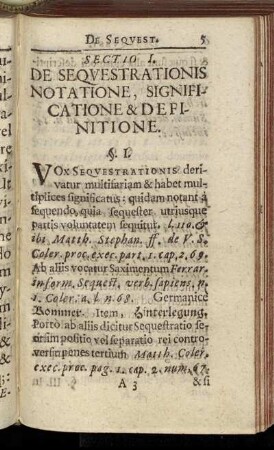 DE SEQVEST. 5
SECTIO I.
DE SEQVESTRATIONIS
NOTATIONE, SIGNIFI-
CATIONE & DEFI-
NITIONE.
§. I.
VOX SEQVESTRATIONIS deri-
vatur multifariam & habet mul-
tiplices significatus: quidam notant à
sequendo, quia sequester utriusque
partis voluntatem sequitur. L. 110. &
ibi Matth. Stephan. ff. de V. S.
Coler. proc. exec. part. 1. cap. 2. 69.
Ab aliis vocatur Saximentum Ferrar.
inform. Sequest. verb. sapiens, n.
1. Coler. d. l. n. 68. Germanicè
Kommer. Item, Hinterlegung,
Porrò ab aliis dicitur Sequestratio se-
orsim positio vel separatio rei contro-
versæ penes tertium Matth. Coler.
exec. proc. pag. 1. cap. 2. num. 67.
A 3 & si